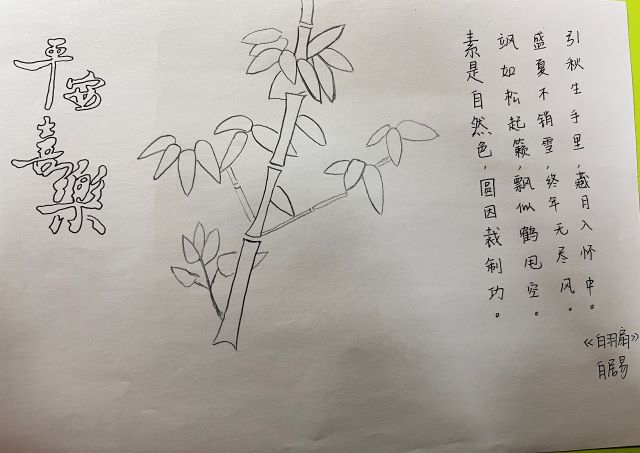 引秋生手里，藏月入怀中。
盛夏不销雪，终年无尽风。
飒如松起籁，飘似鹤甩空。
素是自然色，圓因裁制功。
《白羽扇》
白居易
平安
喜樂